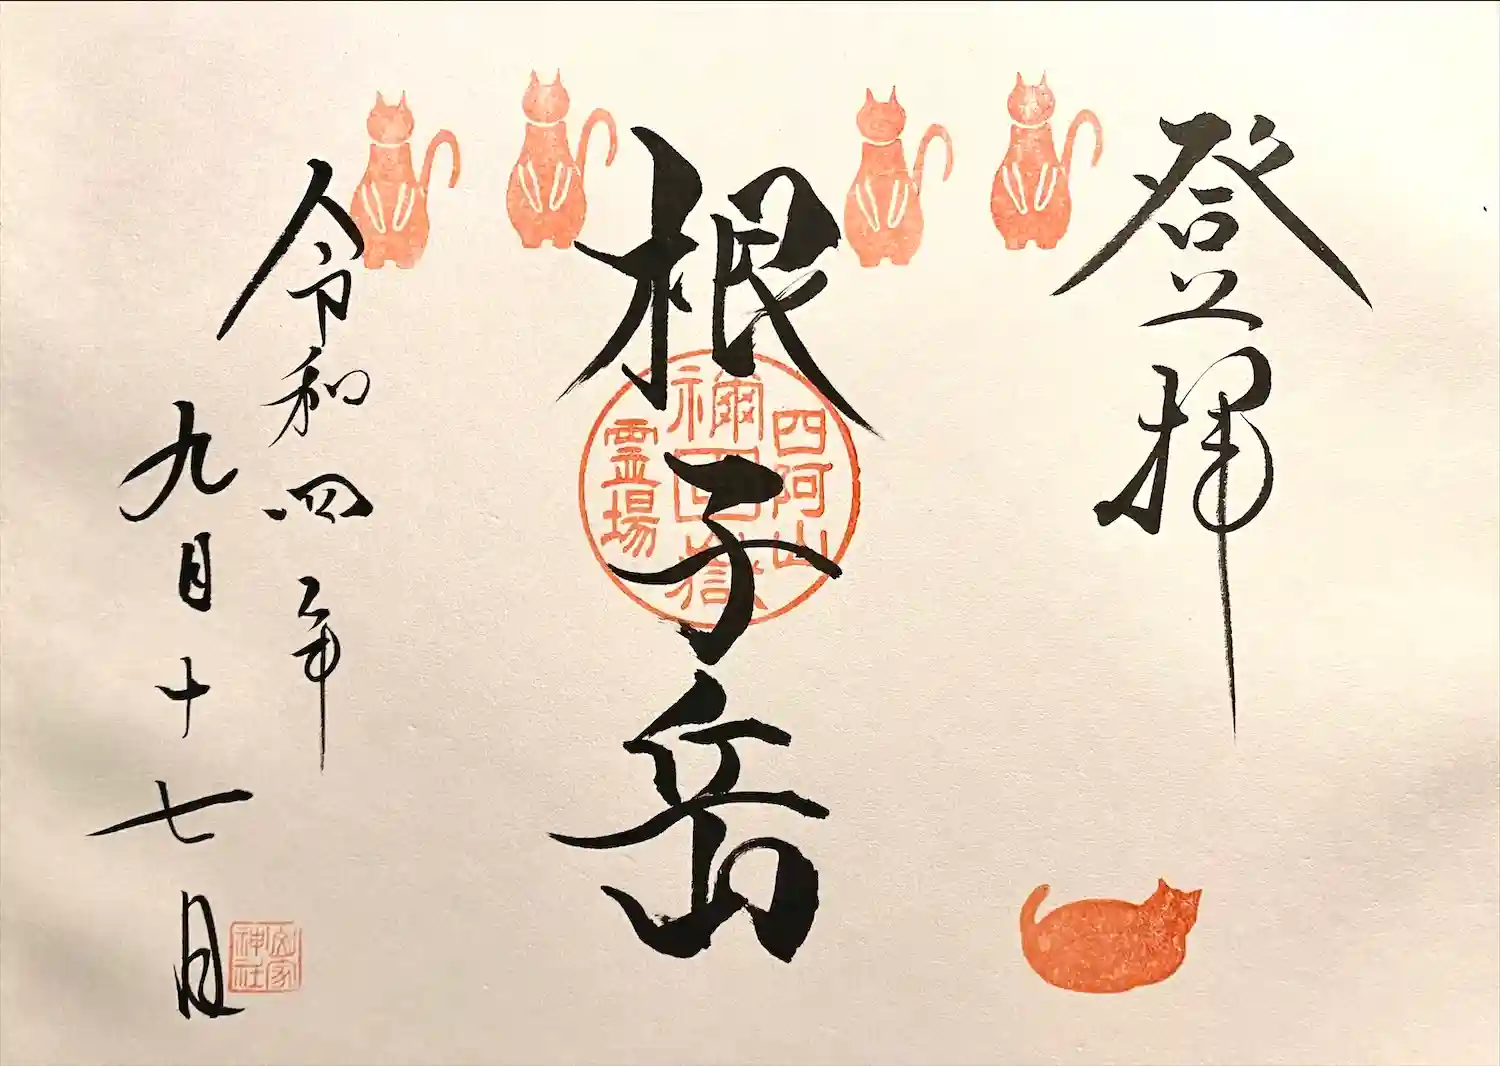 登拝
根子岳
四阿山
禰固嶽
霊場
令和四年
九月十七日
山家
神社